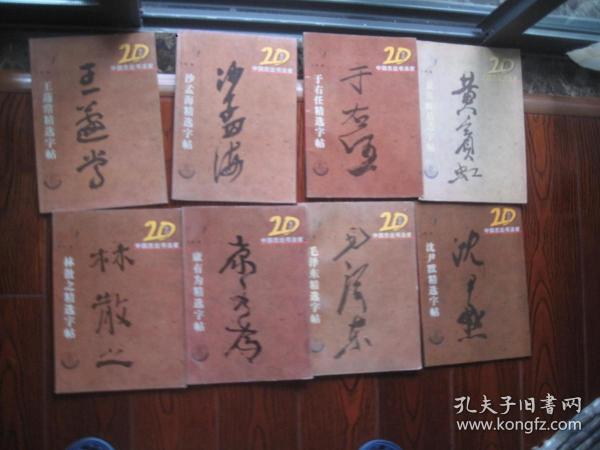 20
中国杰出书法家
王蘧常精选字帖
王蘧常
20
中国杰出书法家
沙孟海精选字帖
沙孟海
20
中国杰出书法家
于右任精选字帖
于右任
20
黄宾虹精选字帖
黄宾虹
20
中国杰出书法家
林散之精选字帖
林散之
20
中国杰出书法家
康有为精选字帖
康有为
20
中国杰出书法家
毛泽东精选字帖
毛泽东
20
中国杰出书法家
沈尹默精选字帖
沈尹默
孔夫子旧书网
www.kongfz.com